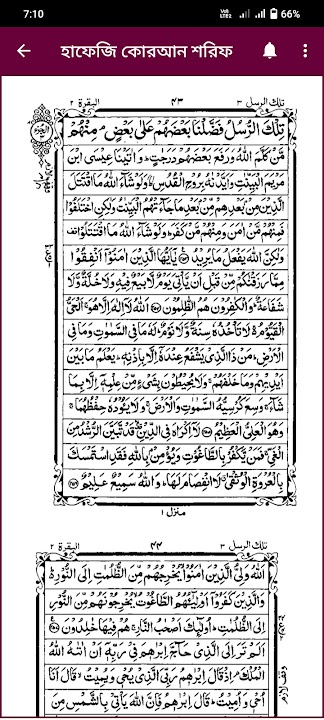 7:10
Vo)) LTE2
66%
হাফেজি কোরআন শরিফ
البقرة ٢
٤٣
تلك الرسل ٣
تِلْكَ الرُّسُلُ فَضَّلْنَا بَعْضَهُمْ عَلٰى بَعْضٍ ۘ مِنْهُمْ
مَّنْ كَلَّمَ اللّٰهُ وَرَفَعَ بَعْضَهُمْ دَرَجٰتٍ ؕ وَاٰتَيْنَا عِيْسَى ابْنَ
مَرْيَمَ الْبَيِّنٰتِ وَاَيَّدْنٰهُ بِرُوْحِ الْقُدُسِ ؕ وَلَوْ شَآءَ اللّٰهُ مَا اقْتَتَلَ
الَّذِيْنَ مِنْۢ بَعْدِهِمْ مِّنْۢ بَعْدِ مَا جَآءَتْهُمُ الْبَيِّنٰتُ وَلٰكِنِ اخْتَلَفُوْا
فَمِنْهُمْ مَّنْ اٰمَنَ وَمِنْهُمْ مَّنْ كَفَرَ ؕ وَلَوْ شَآءَ اللّٰهُ مَا اقْتَتَلُوْا
وَلٰكِنَّ اللّٰهَ يَفْعَلُ مَا يُرِيْدُ ۝ يٰۤاَيُّهَا الَّذِيْنَ اٰمَنُوْۤا اَنْفِقُوْا
مِمَّا رَزَقْنٰكُمْ مِّنْ قَبْلِ اَنْ يَّاْتِيَ يَوْمٌ لَّا بَيْعٌ فِيْهِ وَلَا خُلَّةٌ وَّلَا
شَفَاعَةٌ ؕ وَالْكٰفِرُوْنَ هُمُ الظّٰلِمُوْنَ ۝ اَللّٰهُ لَاۤ اِلٰهَ اِلَّا هُوَ ۚ اَلْحَيُّ
الْقَيُّوْمُ ۚ لَا تَاْخُذُهٗ سِنَةٌ وَّلَا نَوْمٌ ؕ لَهٗ مَا فِى السَّمٰوٰتِ وَمَا فِى
الْاَرْضِ ؕ مَنْ ذَا الَّذِيْ يَشْفَعُ عِنْدَهٗۤ اِلَّا بِاِذْنِهٖ ؕ يَعْلَمُ مَا بَيْنَ
اَيْدِيْهِمْ وَمَا خَلْفَهُمْ ۚ وَلَا يُحِيْطُوْنَ بِشَيْءٍ مِّنْ عِلْمِهٖۤ اِلَّا بِمَا
شَآءَ ۚ وَسِعَ كُرْسِيُّهُ السَّمٰوٰتِ وَالْاَرْضَ ۚ وَلَا يَـُٔوْدُهٗ حِفْظُهُمَا ۚ
وَهُوَ الْعَلِيُّ الْعَظِيْمُ ۝ لَاۤ اِكْرَاهَ فِى الدِّيْنِ ۙ قَدْ تَّبَيَّنَ الرُّشْدُ مِنَ
الْغَيِّ ۚ فَمَنْ يَّكْفُرْ بِالطَّاغُوْتِ وَيُؤْمِنْۢ بِاللّٰهِ فَقَدِ اسْتَمْسَكَ
بِالْعُرْوَةِ الْوُثْقٰى ۗ لَا انْفِصَامَ لَهَا ؕ وَاللّٰهُ سَمِيْعٌ عَلِيْمٌ ۝
منزل ١
البقرة ٢
٤٤
تلك الرسل ٣
اَللّٰهُ وَلِيُّ الَّذِيْنَ اٰمَنُوْا يُخْرِجُهُمْ مِّنَ الظُّلُمٰتِ اِلَى النُّوْرِ ؕ
وَالَّذِيْنَ كَفَرُوْۤا اَوْلِيٰٓـُٔهُمُ الطَّاغُوْتُ يُخْرِجُوْنَهُمْ مِّنَ النُّوْرِ
اِلَى الظُّلُمٰتِ ؕ اُولٰٓئِكَ اَصْحٰبُ النَّارِ ۚ هُمْ فِيْهَا خٰلِدُوْنَ ۝
اَلَمْ تَرَ اِلَى الَّذِيْ حَآجَّ اِبْرٰهٖمَ فِيْ رَبِّهٖۤ اَنْ اٰتٰىهُ اللّٰهُ
الْمُلْكَ ۘ اِذْ قَالَ اِبْرٰهٖمُ رَبِّيَ الَّذِيْ يُحْيٖ وَيُمِيْتُ ۙ قَالَ اَنَا
اُحْيٖ وَاُمِيْتُ ؕ قَالَ اِبْرٰهٖمُ فَاِنَّ اللّٰهَ يَاْتِيْ بِالشَّمْسِ مِنَ
وقف لازم